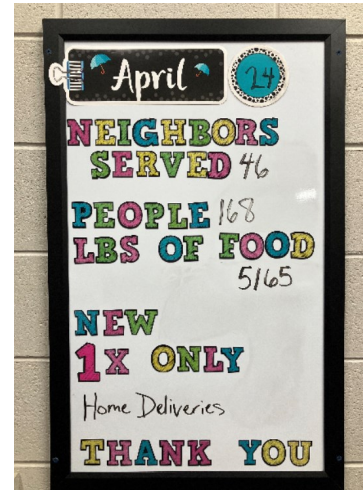 April 24
NEIGHBORS
SERVED 46
PEOPLE 168
LBS OF FOOD
5165
NEW
1X ONLY
Home Deliveries
THANK YOU